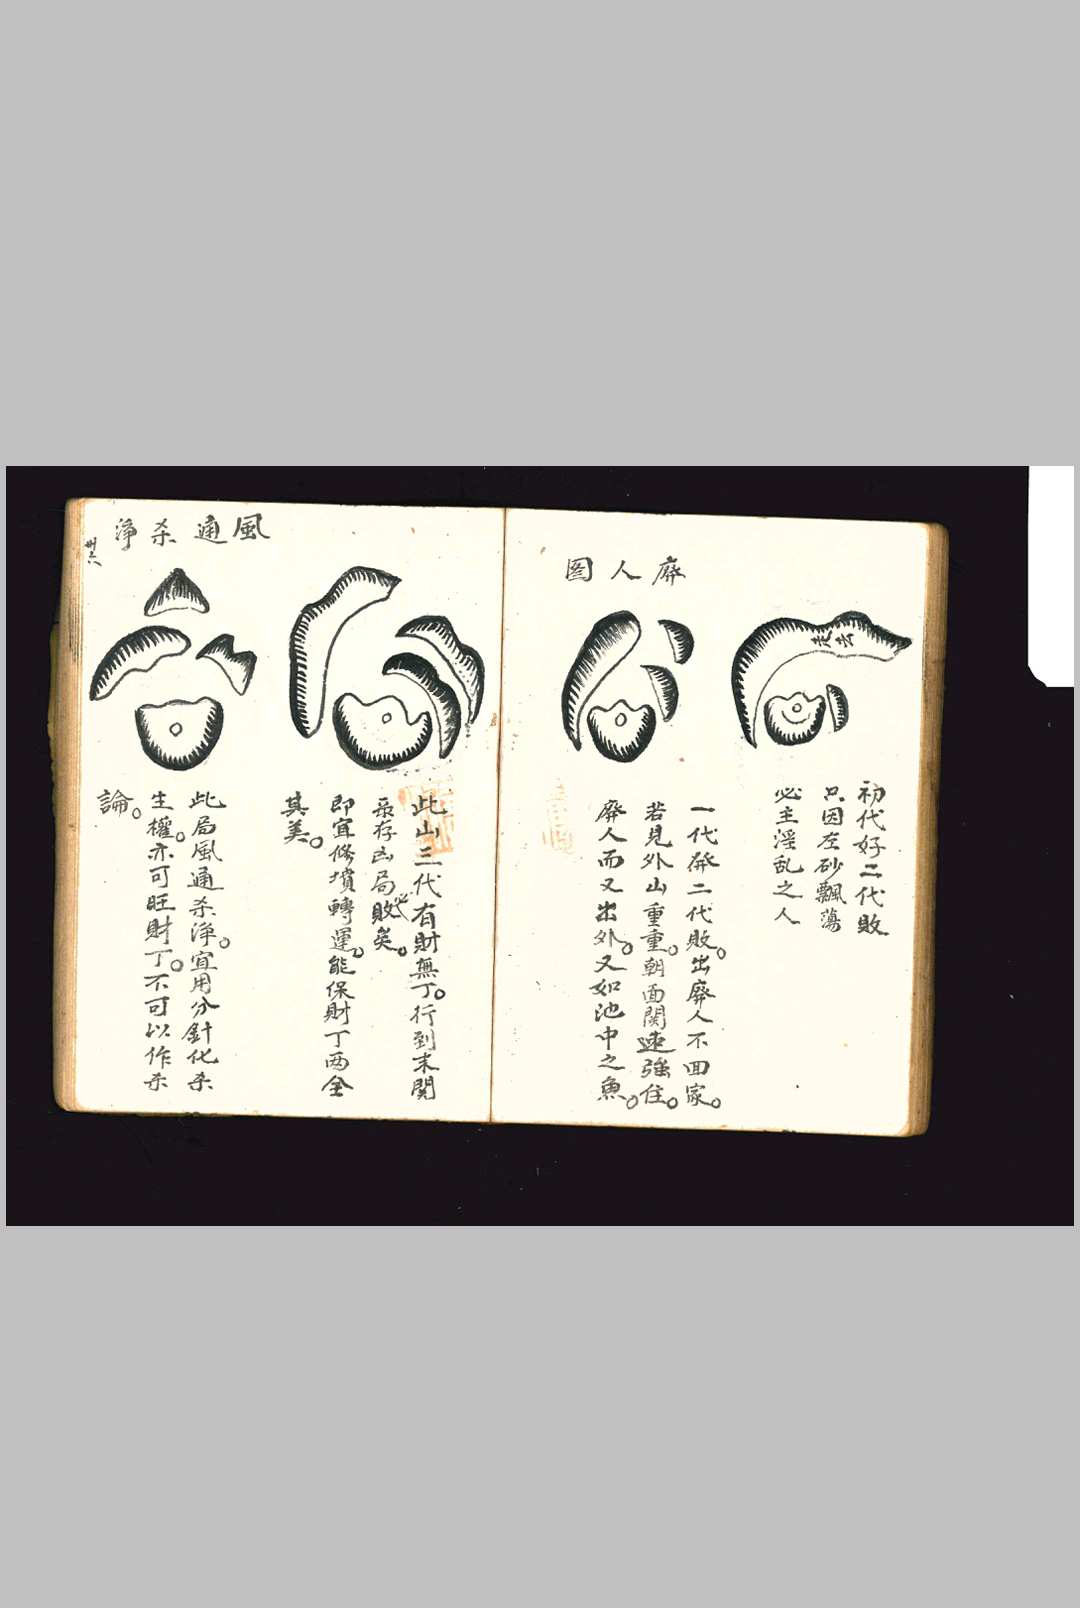 廃人圖
走去
初代好二代敗
只因左砂飄蕩
必主淫乱之人
一代發二代敗。出廃人不囬家。
若見外山重重。朝面関速強住。
廃人而又出外。又如池中之魚。
風通杀淨
卅六
此山三代有財無丁。行到末関
最存凶局敗矣。
即宜修墳轉運。能保財丁两全
其美。
此局風通杀淨。宜用分針化杀
生權。亦可旺財丁。不可以作杀
論。